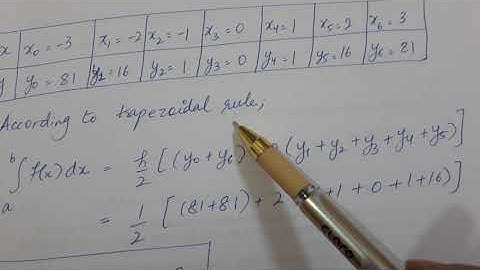 x x₀=-3 x₁=-2 x₂=-1 x₃=0 x₄=1 x₅=2 x₆=3
y y₀=81 y₁=16 y₂=1 y₃=0 y₄=1 y₅=16 y₆=81
According to trapezoidal rule,
b∫a f(x)dx = h/2 [(y₀+y₆) (y₁+y₂+y₃+y₄+y₅)]
= 1/2 [(81+81)+2 +1+0+1+16)]
CLARO